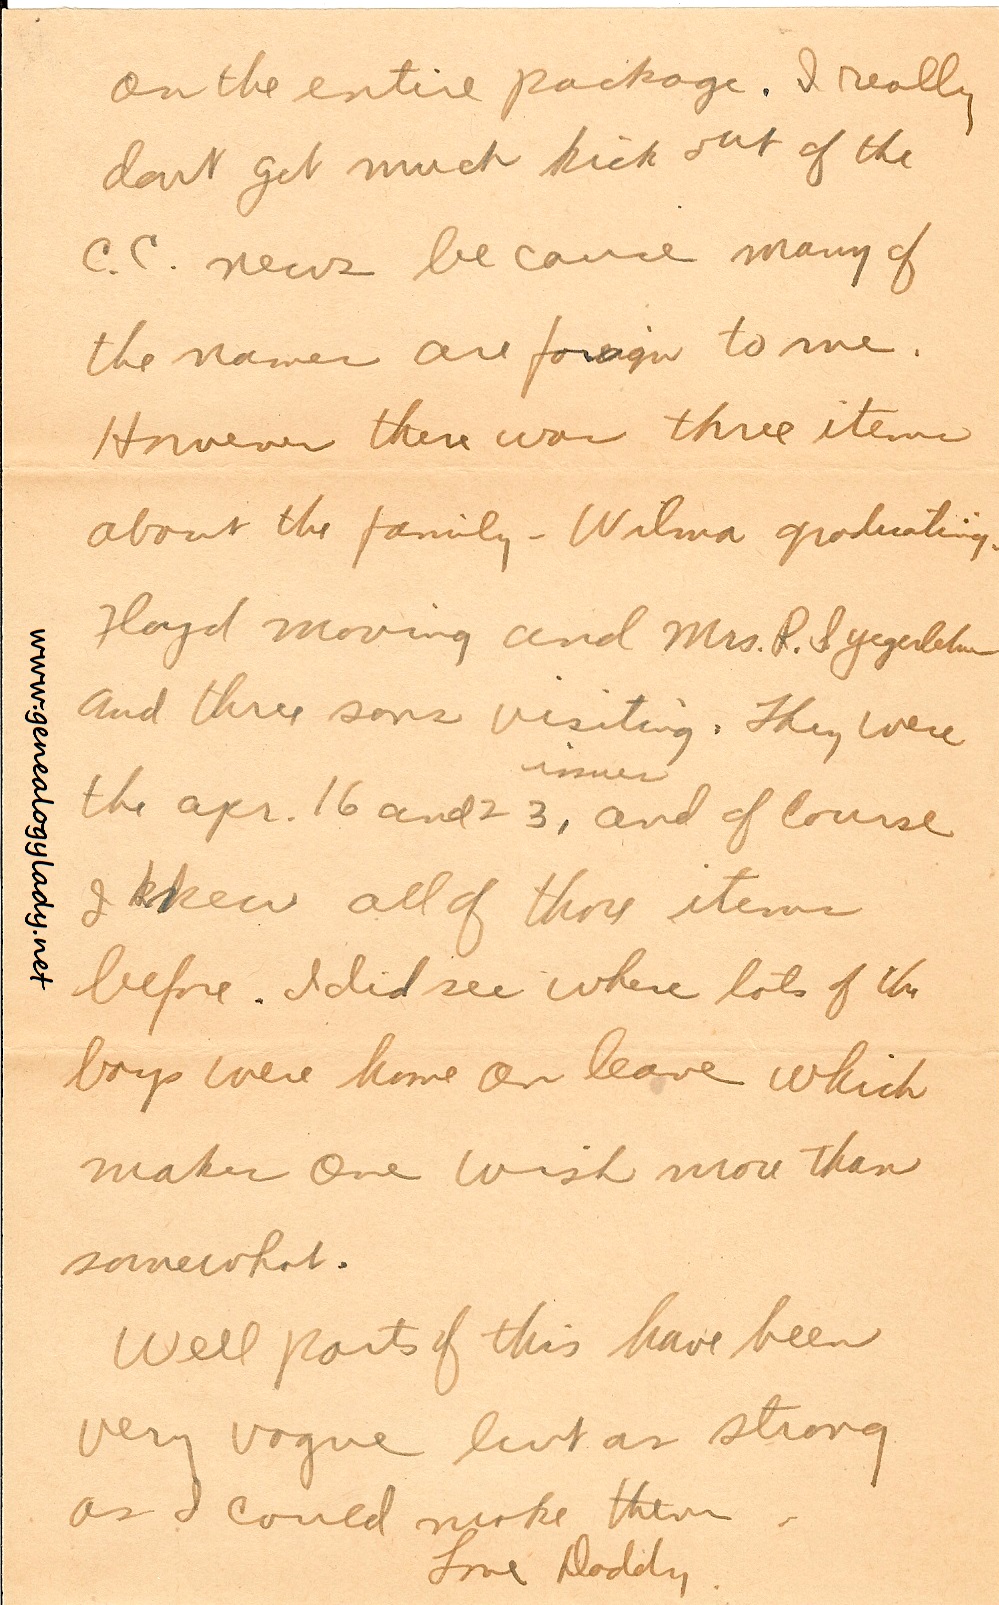 on the entire package. I really
dont get much kick out of the
C.C. news because many of
the names are foreign to me.
However there was three items
about the family - Wilma graduating-
Floyd moving and Mrs. R. I Yegerlehner
and three sons visiting. They were
issues
the apr. 16 and 23, and of course
I knew all of those items
before. I did see where lots of the
boys were home on leave which
makes one wish more than
somewhat.
Well parts of this have been
very vague but as strong
as I could make them.
Love Daddy.
www.genealogylady.net